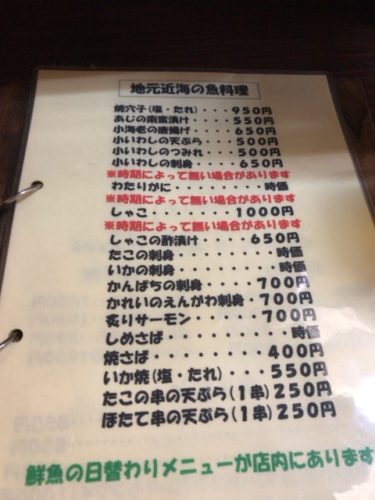 地元近海の魚料理
焼穴子(塩・たれ)・・・950円
あじの南蛮漬け・・・・550円
小海老の唐揚げ・・・・650円
小いわしの天ぷら・・・500円
小いわしのつみれ・・・500円
小いわしの刺身・・・・650円
※時期によって無い場合があります
わたりがに・・・・・・時価
※時期によって無い場合があります
しゃこ・・・・・・・1000円
※時期によって無い場合があります
しゃこの酢漬け・・・・650円
たこの刺身・・・・・・・時価
いかの刺身・・・・・・・時価
かんぱちの刺身・・・・700円
かれいのえんがわ刺身・・700円
炙りサーモン・・・・・700円
しめさば・・・・・・・・時価
焼さば・・・・・・・・400円
いか焼(塩・たれ)・・・550円
たこの串の天ぷら(1串)250円
ほたて串の天ぷら(1串)250円
鮮魚の日替わりメニューが店内にあります